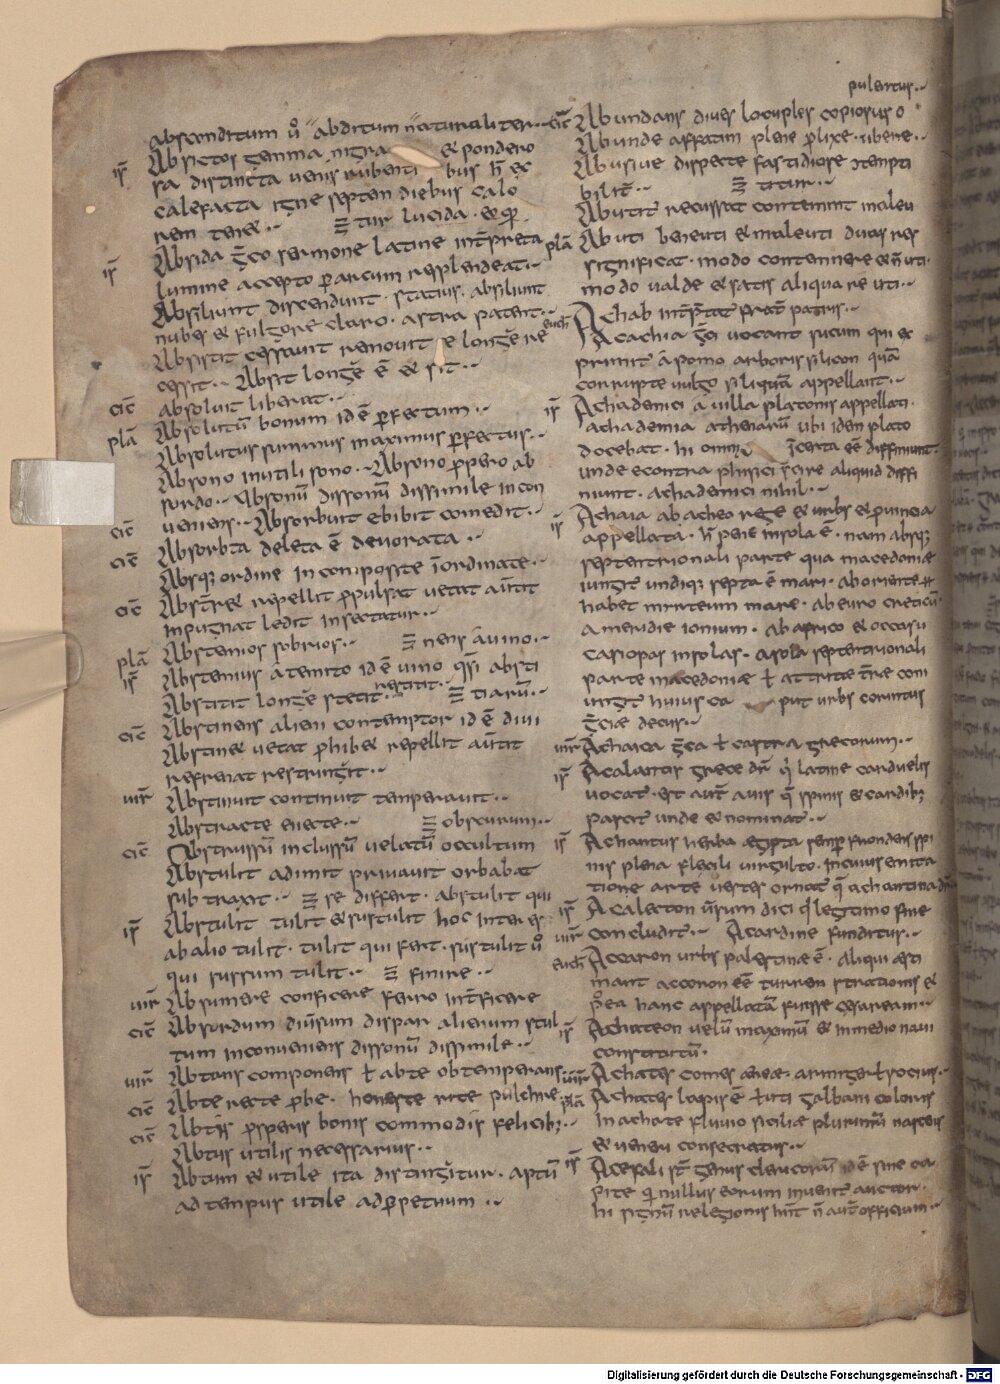 absconditum ů abditum naturaliter··
iş Absictos gemma nigra & pondero
sa distincta venis rubenti bus h̄ ex
calefacta igne septem diebus calo
rem ten&··  tur lucida· & q̄
iş Absida ḡco sermone latine int̄preta
lumine accepto ꝑ arcum resplendeat··
Absiliunt discendunt· status· absiliunt
nubes & fulgore claro· astra patent··
Absistit cessavit removit e longe re
cessit·· Absit longe ē & sit··
cic̄ absolvit liberat··
pla Absolutū bonum id ē ꝑfectum··
Absolutus summus maximus ꝑfectus··
Absono inutili sono·· Absono ꝓpero ab
surdo·· Absonū dissonū dissimile incon
cic̄ veniens·· Absorbuit ebibit comedit··
cic̄ Absorbta deleta ē devorata··
Absq; ordine incomposite īordinate··
cic̄ Abst̄r& repellit ꝓpulsat vetat auertit
inpugnat ledit insectatur··
pla Abstemios sobrios··  nens a vino··
iş Abstemius a temeto id ē vino qsi absti
Abstitit longe stetit restitit··  tiarū··
cic̄ Abstinens alieni contemptor id ē divi
Abstin& vetat ꝓhib& repellit auertit
refrenat restringit··
vir̄ Abstinuit continuit temperavit··
Abstracte eiecte··  obscurum··
cic̄ Abstrussū inclussū velatū occultum
Abstulit adimit privavit orbabat
subtraxit··  se differt· abstulit qui
iş Abstulit tulit & sustulit hoc inter
ab alio tulit· tulit qui fert· sustulit ů
qui sussum tulit··  finire··
vir̄ Absumere conficere ferro int̄ficere
cic̄ Absurdum diūsum dispar alienum stul
tum inconveniens dissonū dissimile··
vir̄ Abtans componens ł abte obtemperans
cic̄ Abte recte ꝓbe· honeste rite pulchre
cic̄ Abtis ꝓsperis bonis commodis felicib;··
Abtus utilis necessarius··
iş Abtum & utile ita distingitur· aptū
ad tempus utile ad ꝑpetuum··
pulentus··
cic̄ Abundans dives locuples copiosus o
Abunde affatim plene ꝓlixe· ubere··
Abusive dispecte fastidiose ɔtempti
bilit̄··  titur··
Abutit recussat contemnit male u
pla Abuti bene uti & male uti duas res
significat· modo contemnere & n̄ uti·
modo valde & satis aliqua re uti··
Achab int̄ptat frat̄ patris··
euch Acachia ḡci vocant sucum qui ex
primit̄ a pomo arboris silicon quā
corrupte vulgo siliquā appellant··
iş Achademici a villa platonis appellati·
achademia athenarū ubi idem plato
docebat· hi omnia īcerta eē diffiniunt
unde econtra phisici scire aliquid diffi
niunt· achademici nihil··
iş Achaia ab acheo rege & urbs & ꝓvincia
appellata· h̄ pene insola ē· nam absq;
septentrionali parte qua macedoniæ
iungit̄ undiq; septa ē mari· ab oriente
habet mirteum mare· ab euro creticū
a meridie ionium· ab africo & occasu
casiopas insolas· a sola septentrionali
parte macedoniæ ł atticæ t̄ræ coni
ungit̄ huius ca put urbs corintus
ḡciæ decus··
vir̄ Achaica ḡca ł castra grecorum··
iş Acalantis grece dr̄ q̄ latine carduelis
vocat̄· est aut̄ avis q̄ spinis & cardib;
pascit̄ unde & nominat̄··
iş Achantus herba ægypta semꝑ frondens spi
nis plena flexili virgulto· in cuius imita
tione arte vestes ornat̄ q̄ achantina dr̄
iş Acalecton v̄sum dici q̄ legitimo fine
vir̄ concludit̄·· A cardine funditur··
euch Accaron urbs palestinæ ē· aliqui esti
mant accoron eē turrem stratonis &
ṗea hanc appellatā fuisse cesaream··
iş Achateon velū maximū & in medio navi
constitutū·
vir̄ Achates comes æneæ· armiger ł socius··
pla Achates lapis ē ł uti galbani coloris
in achate fluvio siciliæ plurimū nascens
& veneri consecratus··
iş Acefali st̄ genus clericorū id ē sine ca
pite q̄ nullus eorum invenit̄ auctor·
hi signū relegionis hn̄t n̄ aut̄ officium··
Digitalisierung gefördert durch die Deutsche Forschungsgemeinschaft - DFG